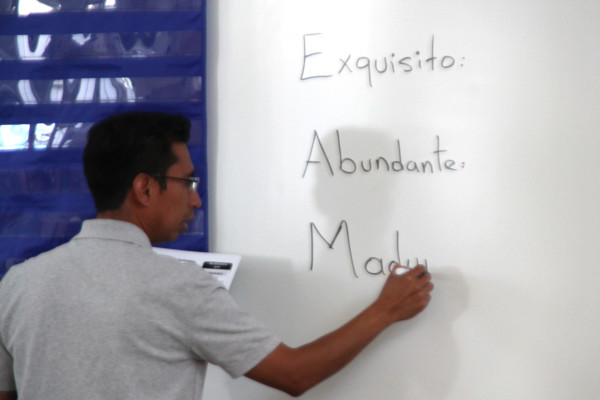 Exquisito:
Abundante:
Madu